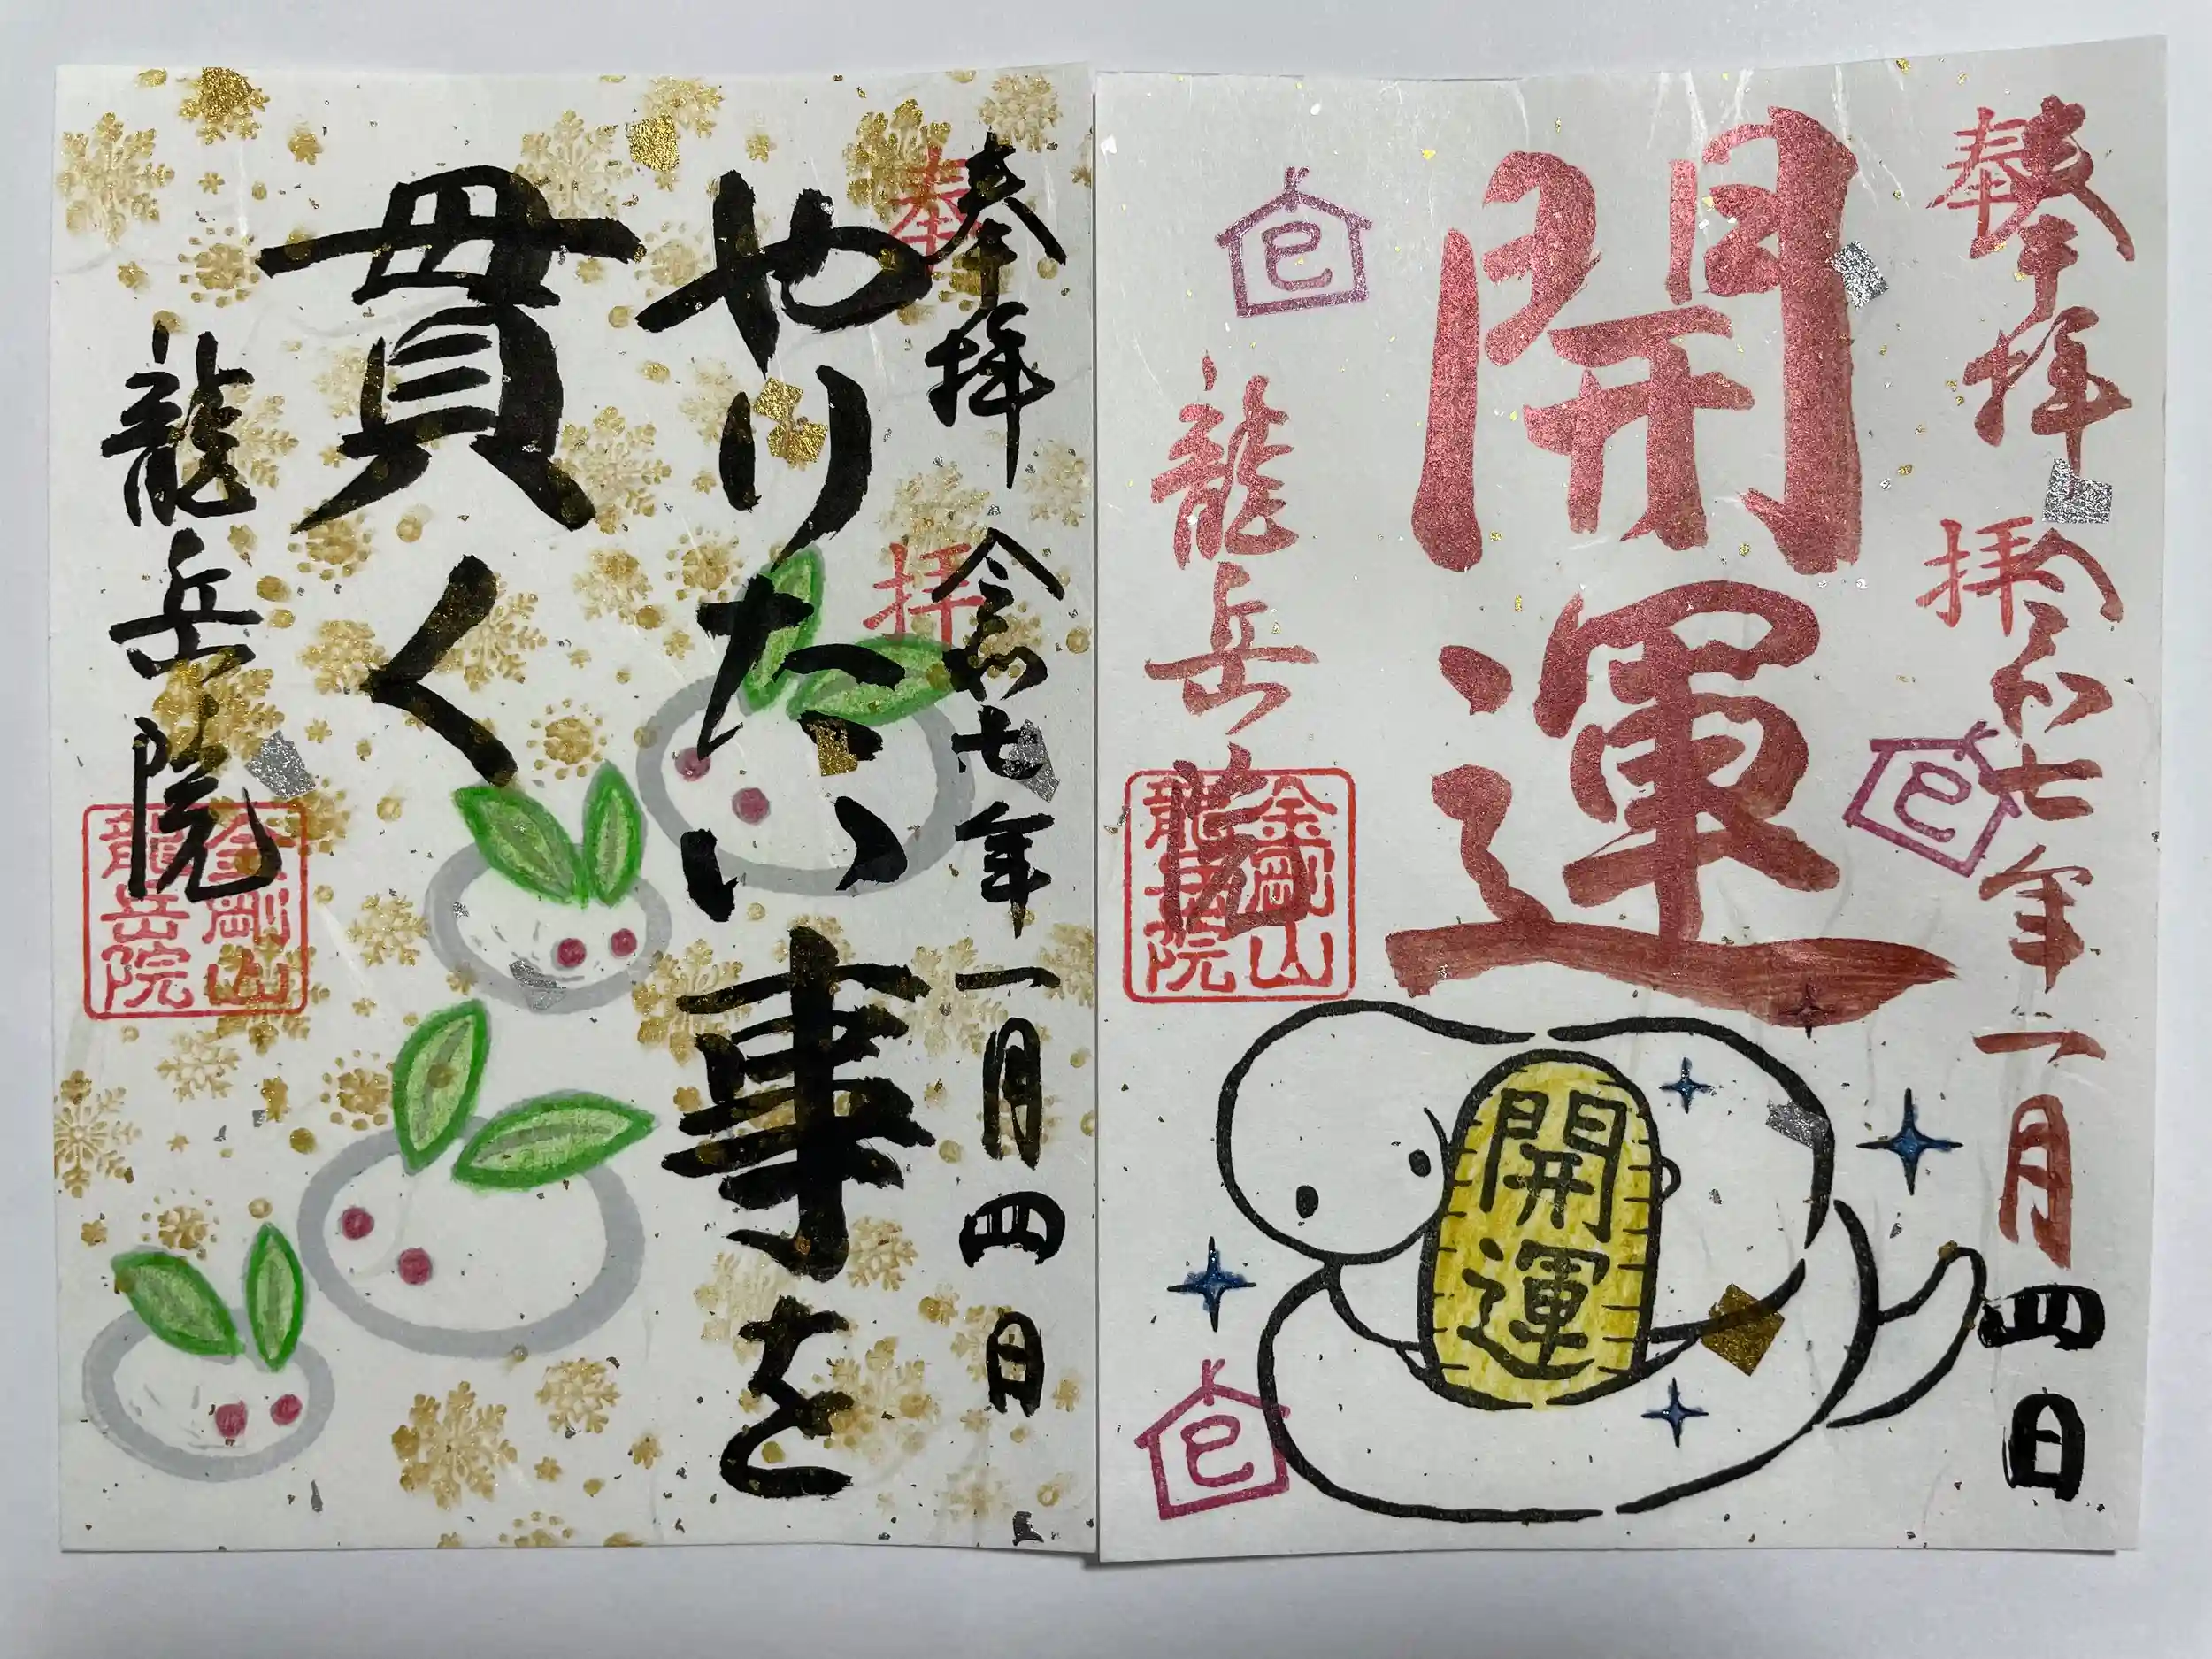 奉拝 令和七年一月四日
奉拝
開運
巳
巳
龍岳院
金剛山
龍岳院
開運
巳
奉拝 令和七年一月四日
奉拝
やりたい事を
貫く
龍岳院
金剛山
龍岳院